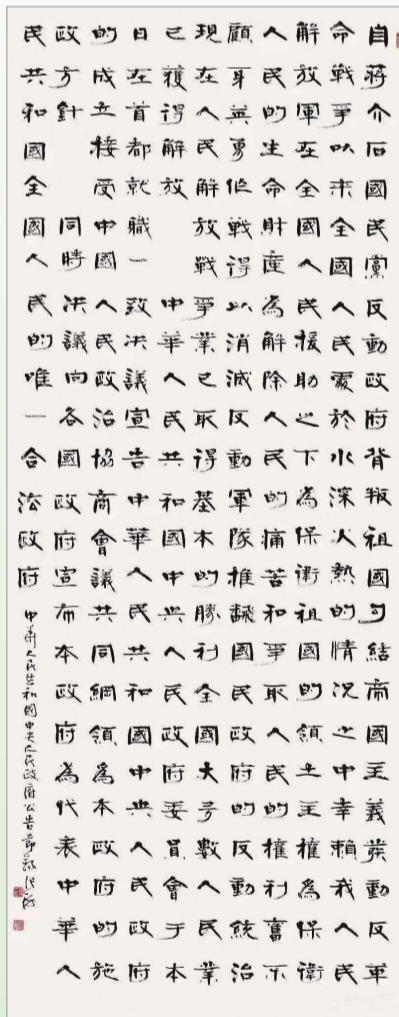 自蔣介石國民黨反動政府背叛祖國勾結帝國主義發動反革
命戰爭以來全國人民處於水深火熱的情況之中幸賴我人民
解放軍在全國人民援助之下為保衛祖國的領土主權為保衛
人民的生命財產為解除人民的痛苦和爭取人民的權利奮不
顧身英勇作戰得以消滅反動軍隊推翻國民政府的反動統治
現在人民解放戰爭業已取得基本的勝利全國大多數人民業
已獲得解放 中華人民共和國中央人民政府委員會于本
日在首都就職一致決議宣告中華人民共和國中央人民政府
的成立接受中國人民政治協商會議共同綱領為本政府的施
政方針 同時決議向各國政府宣布本政府為代表中華人
民共和國全國人民的唯一合法政府
中華人民共和國中央人民政府公告節錄